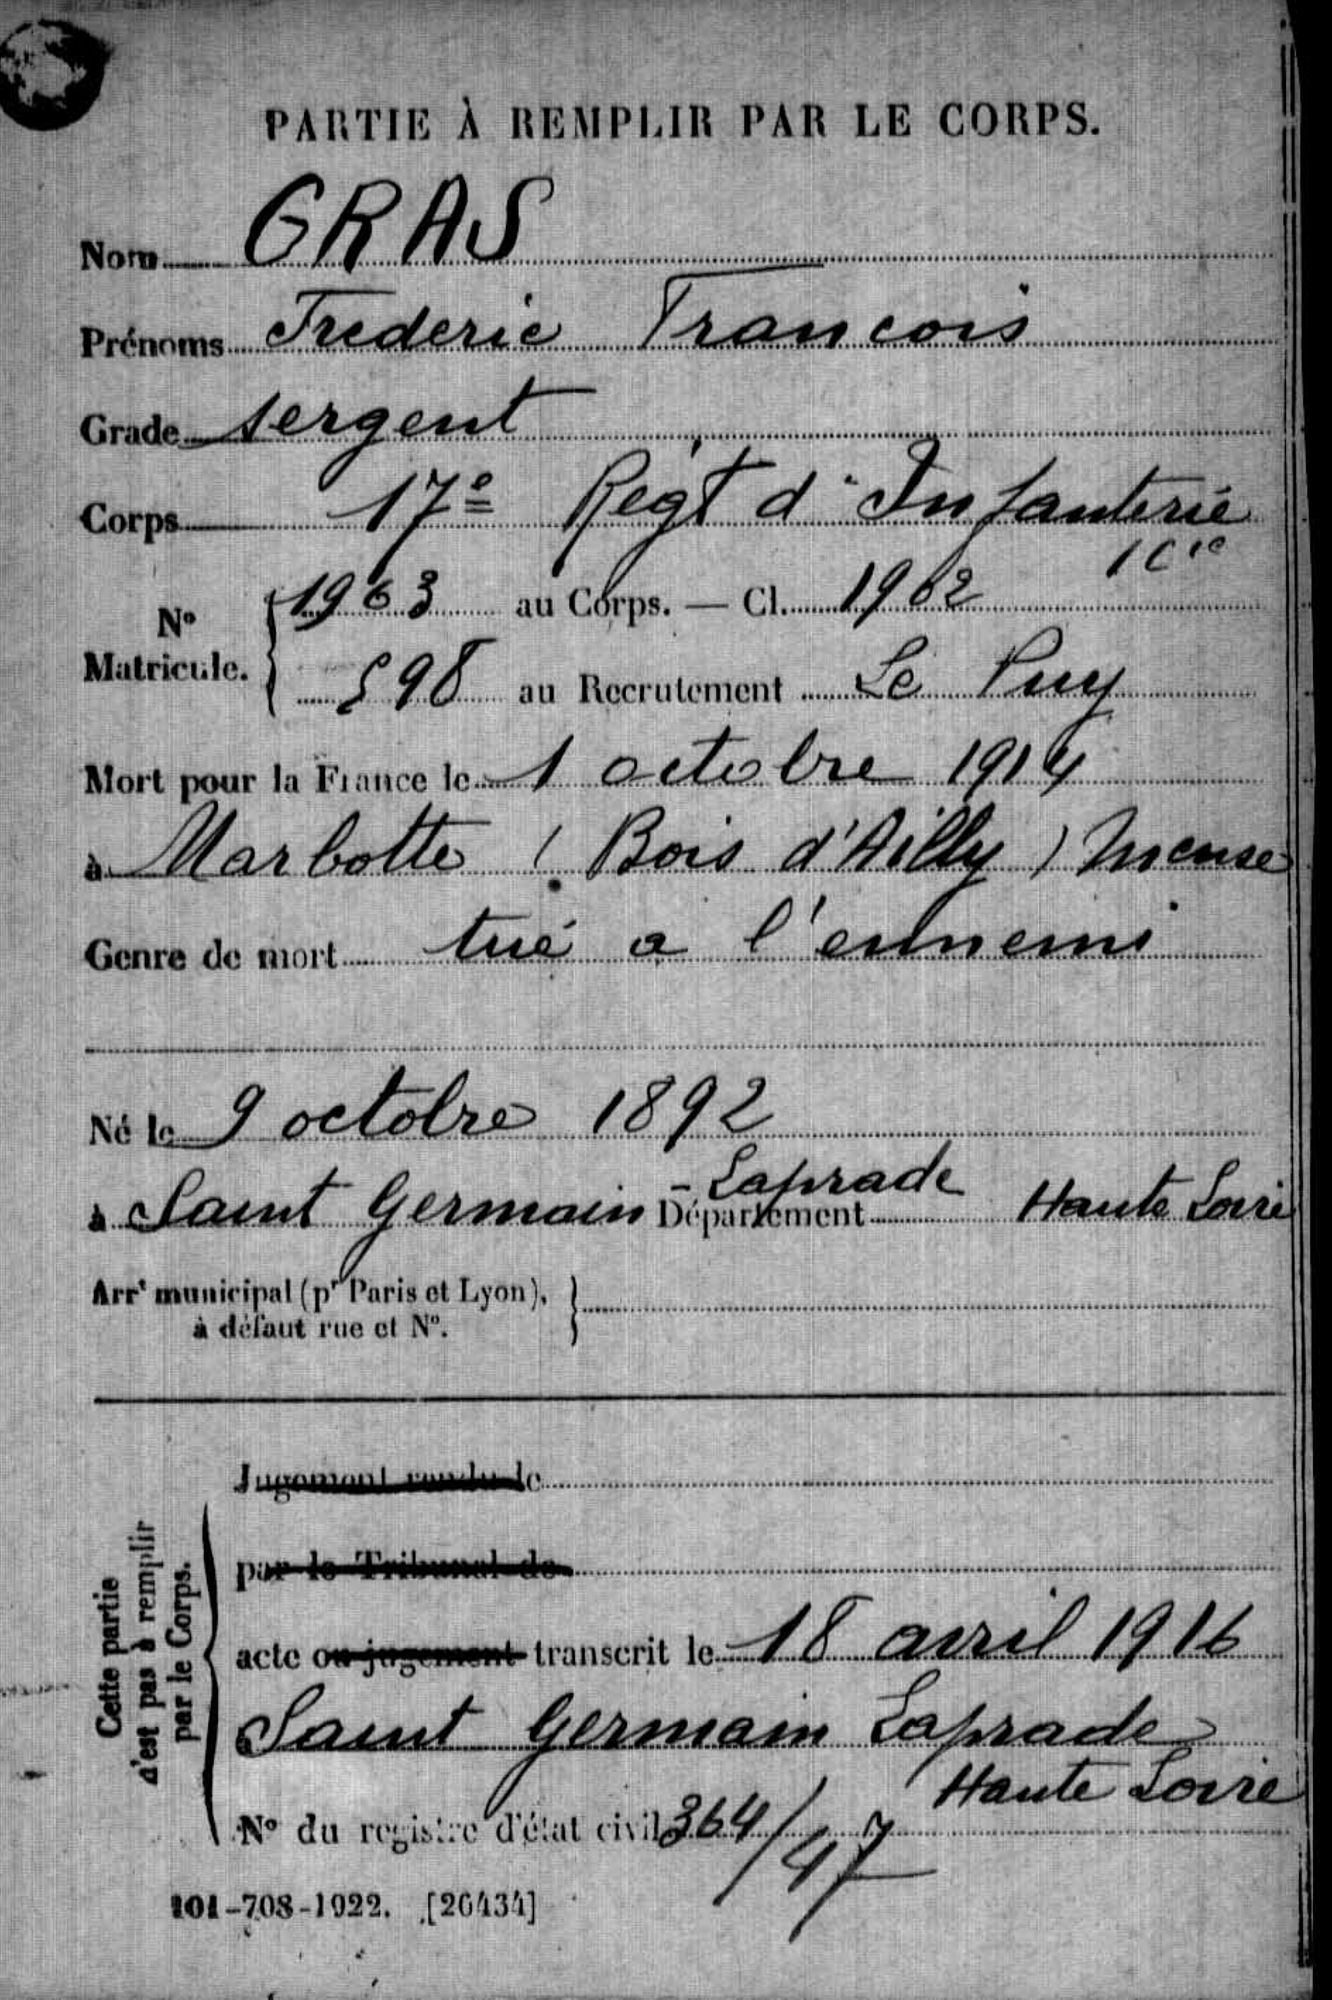 PARTIE À REMPLIR PAR LE CORPS.
Nom GRAS
Prénoms Frederic Francois
Grade sergent
Corps 17e Regt d'Infanterie
1 Cie
No Matricule. { 1963 au Corps. — Cl. 1902
598 au Recrutement Le Puy
Mort pour la France le 1 octobre 1914
à Marbotte (Bois d'Ailly) Meuse
Genre de mort tué a l'ennemi
Né le 9 octobre 1892
à Saint Germain - Laprade Département Haute Loire
Arrt municipal (pr Paris et Lyon),
à défaut rue et No.
Jugement rendu le
par le Tribunal de
acte ou jugement transcrit le 18 avril 1916
Saint Germain Laprade
Haute Loire
No du registre d'état civil 364/47
Cette partie
n'est pas à remplir
par le Corps.
101-708-1922. [26434]